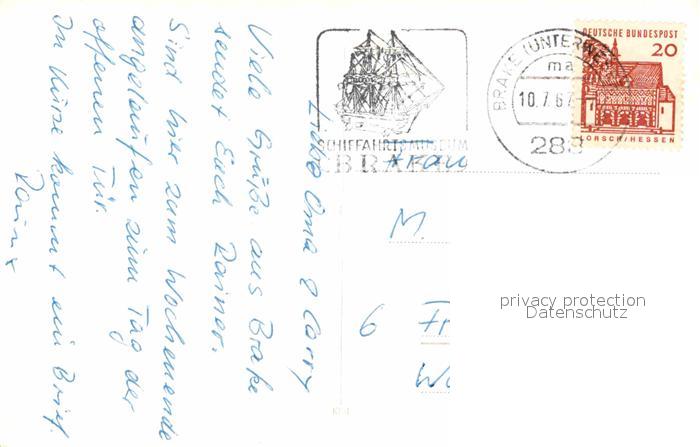 Liebe Oma & Conny
Viele Grüße aus Brake
sendet Euch Rainer.
Sind hier zum Wochenende
angelaufen zum Tag der
offenen Tür.
In Kürze kommt ein Brief.
Rainer
SCHIFFAHRTSMUSEUM
BRAKE
BRAKE (UNTERWESER)
ma
10.7.67
288
DEUTSCHE BUNDESPOST
20
LORSCH/HESSEN
Frau
M.
6 Fr
privacy protection
Datenschutz